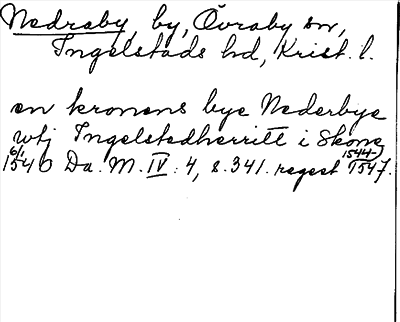 Nedraby, by, Övraby sn,
Ingelstads hd, Krist. l.
en kronens bye Nederbye
wtj Ingelstedherritt i Skone
6/1 1540 Da. M. IV: 4, s. 341. regest 1544-1547.